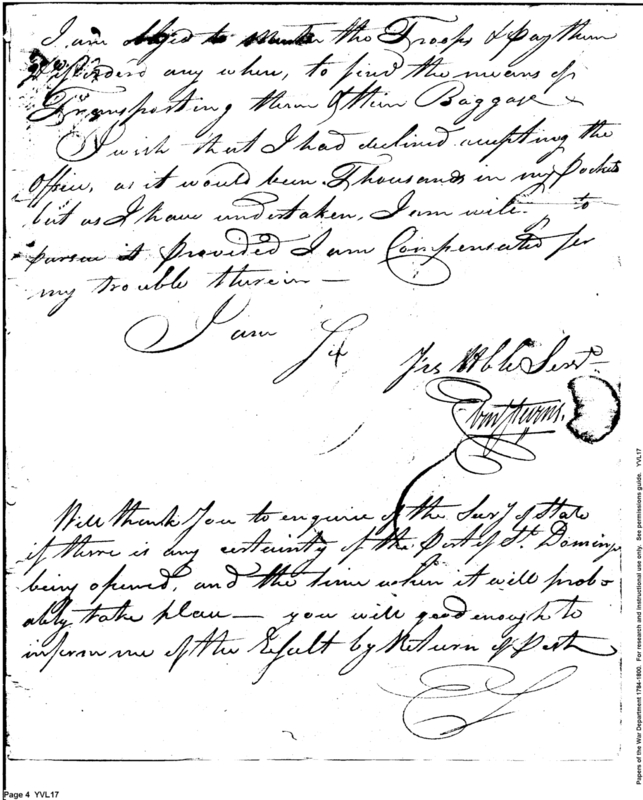 I am obliged to Muster the Troops & pay them
if ordered any where, to find the means of
Transporting them & their Baggage
I wish that I had declined accepting the
Office, as it would been Thousands in my Pockets
but as I have undertaken, I am will.g to
pursue it provided I am Compensated for
my trouble therein —
I am Sir
Yrs Hble Servt
Eben Stevens.
Will thank You to enquire of the Secy of State
if there is any certainty of the Port of St. Domingo
being opened, and the time when it will prob-
ably take place — you will good enough to
inform me of the Result by Return of Post
ES
Page 4 YVL17
Papers of the War Department 1784-1800. For research and instructional use only. See permissions guide. YVL17